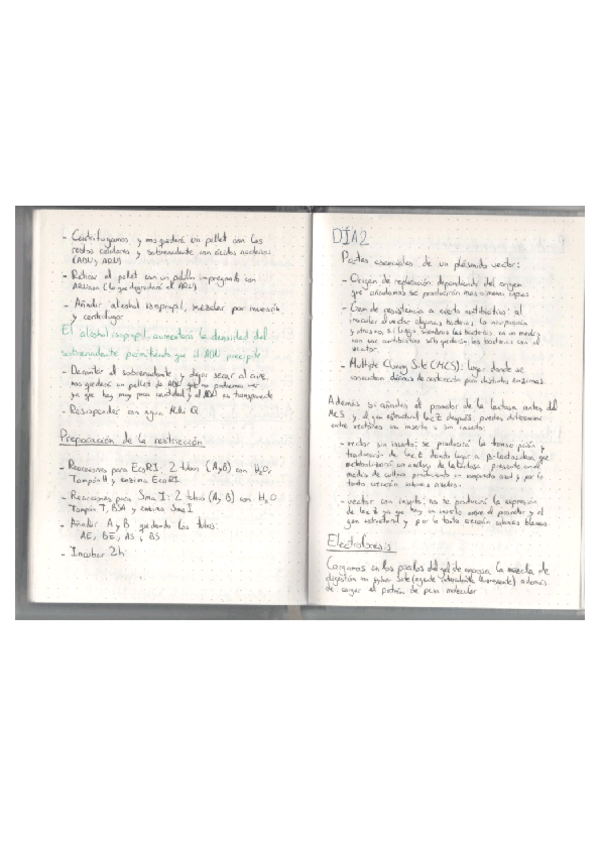 - Centrifugamos y nos quedará un pellet con los
restos celulares y sobrenadante con ácidos nucleicos
(ADN y ARN)
- Retirar el pellet con un palillo impregnado con
ARNasa (lo que degradará el ARN)
- Añadir alcohol isopropil, mezclar por inversión
y centrifugar
El alcohol isopropil aumentará la densidad del
sobrenadante permitiendo que el ADN precipite
- Decantar el sobrenadante y dejar secar al aire,
nos quedará un pellet de ADN que no podremos ver
ya que hay muy poca cantidad y el ADN es transparente
- Resuspender con agua Milli Q
Preparación de la restricción
- Reacciones para EcoRI: 2 tubos (A y B) con H2O,
Tampón H y enzima EcoRI
- Reacciones para SmaI: 2 tubos (A y B) con H2O
Tampón T, BSA y enzima SmaI
- Añadir A y B quedando los tubos:
AE, BE, AS, BS
- Incubar 2h
DÍA 2
Partes esenciales de un plásmido vector:
- Origen de replicación dependiendo del origen
que añadamos se producirán más o menos copias
- Gen de resistencia a cierto antibiótico: al
inocular el vector algunas bacterias lo incorporarán
y otras no, si luego sembramos las bacterias en un medio
con ese antibiótico sólo quedarán las bacterias con el
vector.
- Multiple Cloning Site (MCS): lugar donde se
concentran dianas de restricción para distintas enzimas.
Además si añades el promotor de la lactosa antes del
MCS y el gen estructural lacZ después, puedes determinar
entre vectores con inserto o sin inserto:
- vector sin inserto: se producirá la transcripción y
traducción de lacZ dando lugar a β-lactosidasa que
metabolizará un análogo de la lactosa presente en el
medio de cultivo produciendo un compuesto azul y por lo
tanto crecerán colonias azules.
- vector con inserto: no se producirá la expresión
de lacZ ya que hay un inserto entre el promotor y el
gen estructural y por lo tanto crecerán colonias blancas.
Electroforesis
Cargamos en los pocillos del gel de agarosa la mezcla de
digestión con syber safe (agente intercalante fluorescente) además
de cargar el patrón de peso molecular